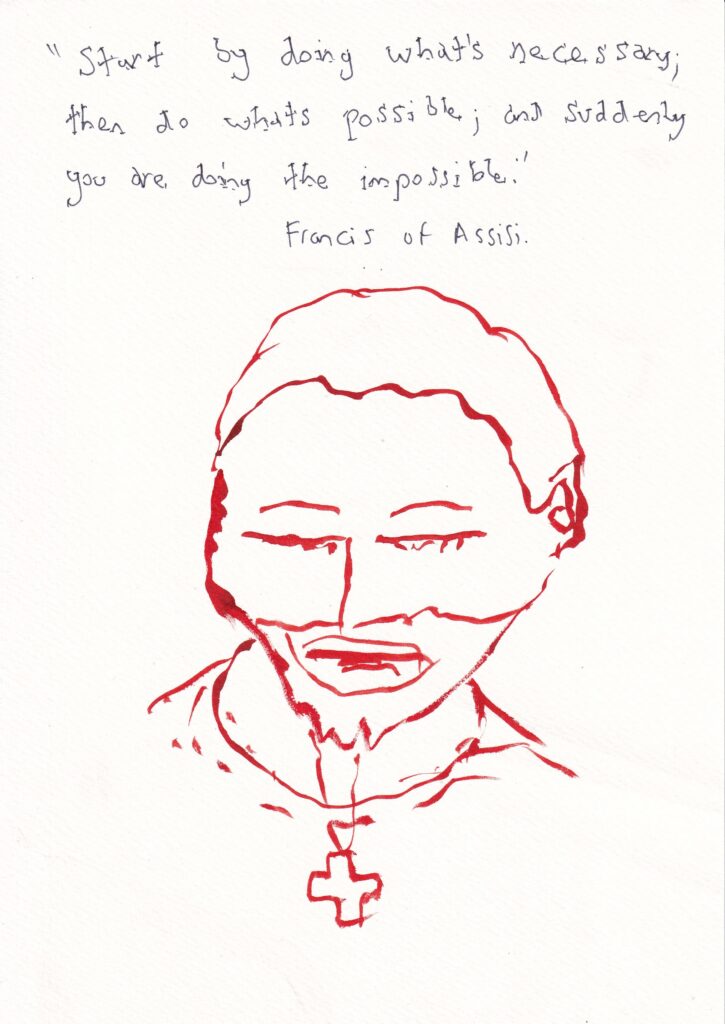 "Start by doing what's necessary;
then do whats possible; and suddenly
you are doing the impossible."
Francis of Assisi.